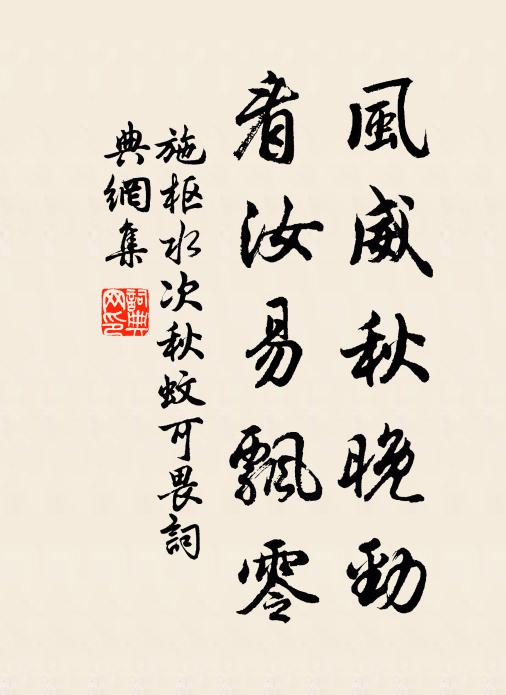 風威秋晚勁
看汝易飄零
施枢水次秋蚊可畏詞
典網集
詞典
网印